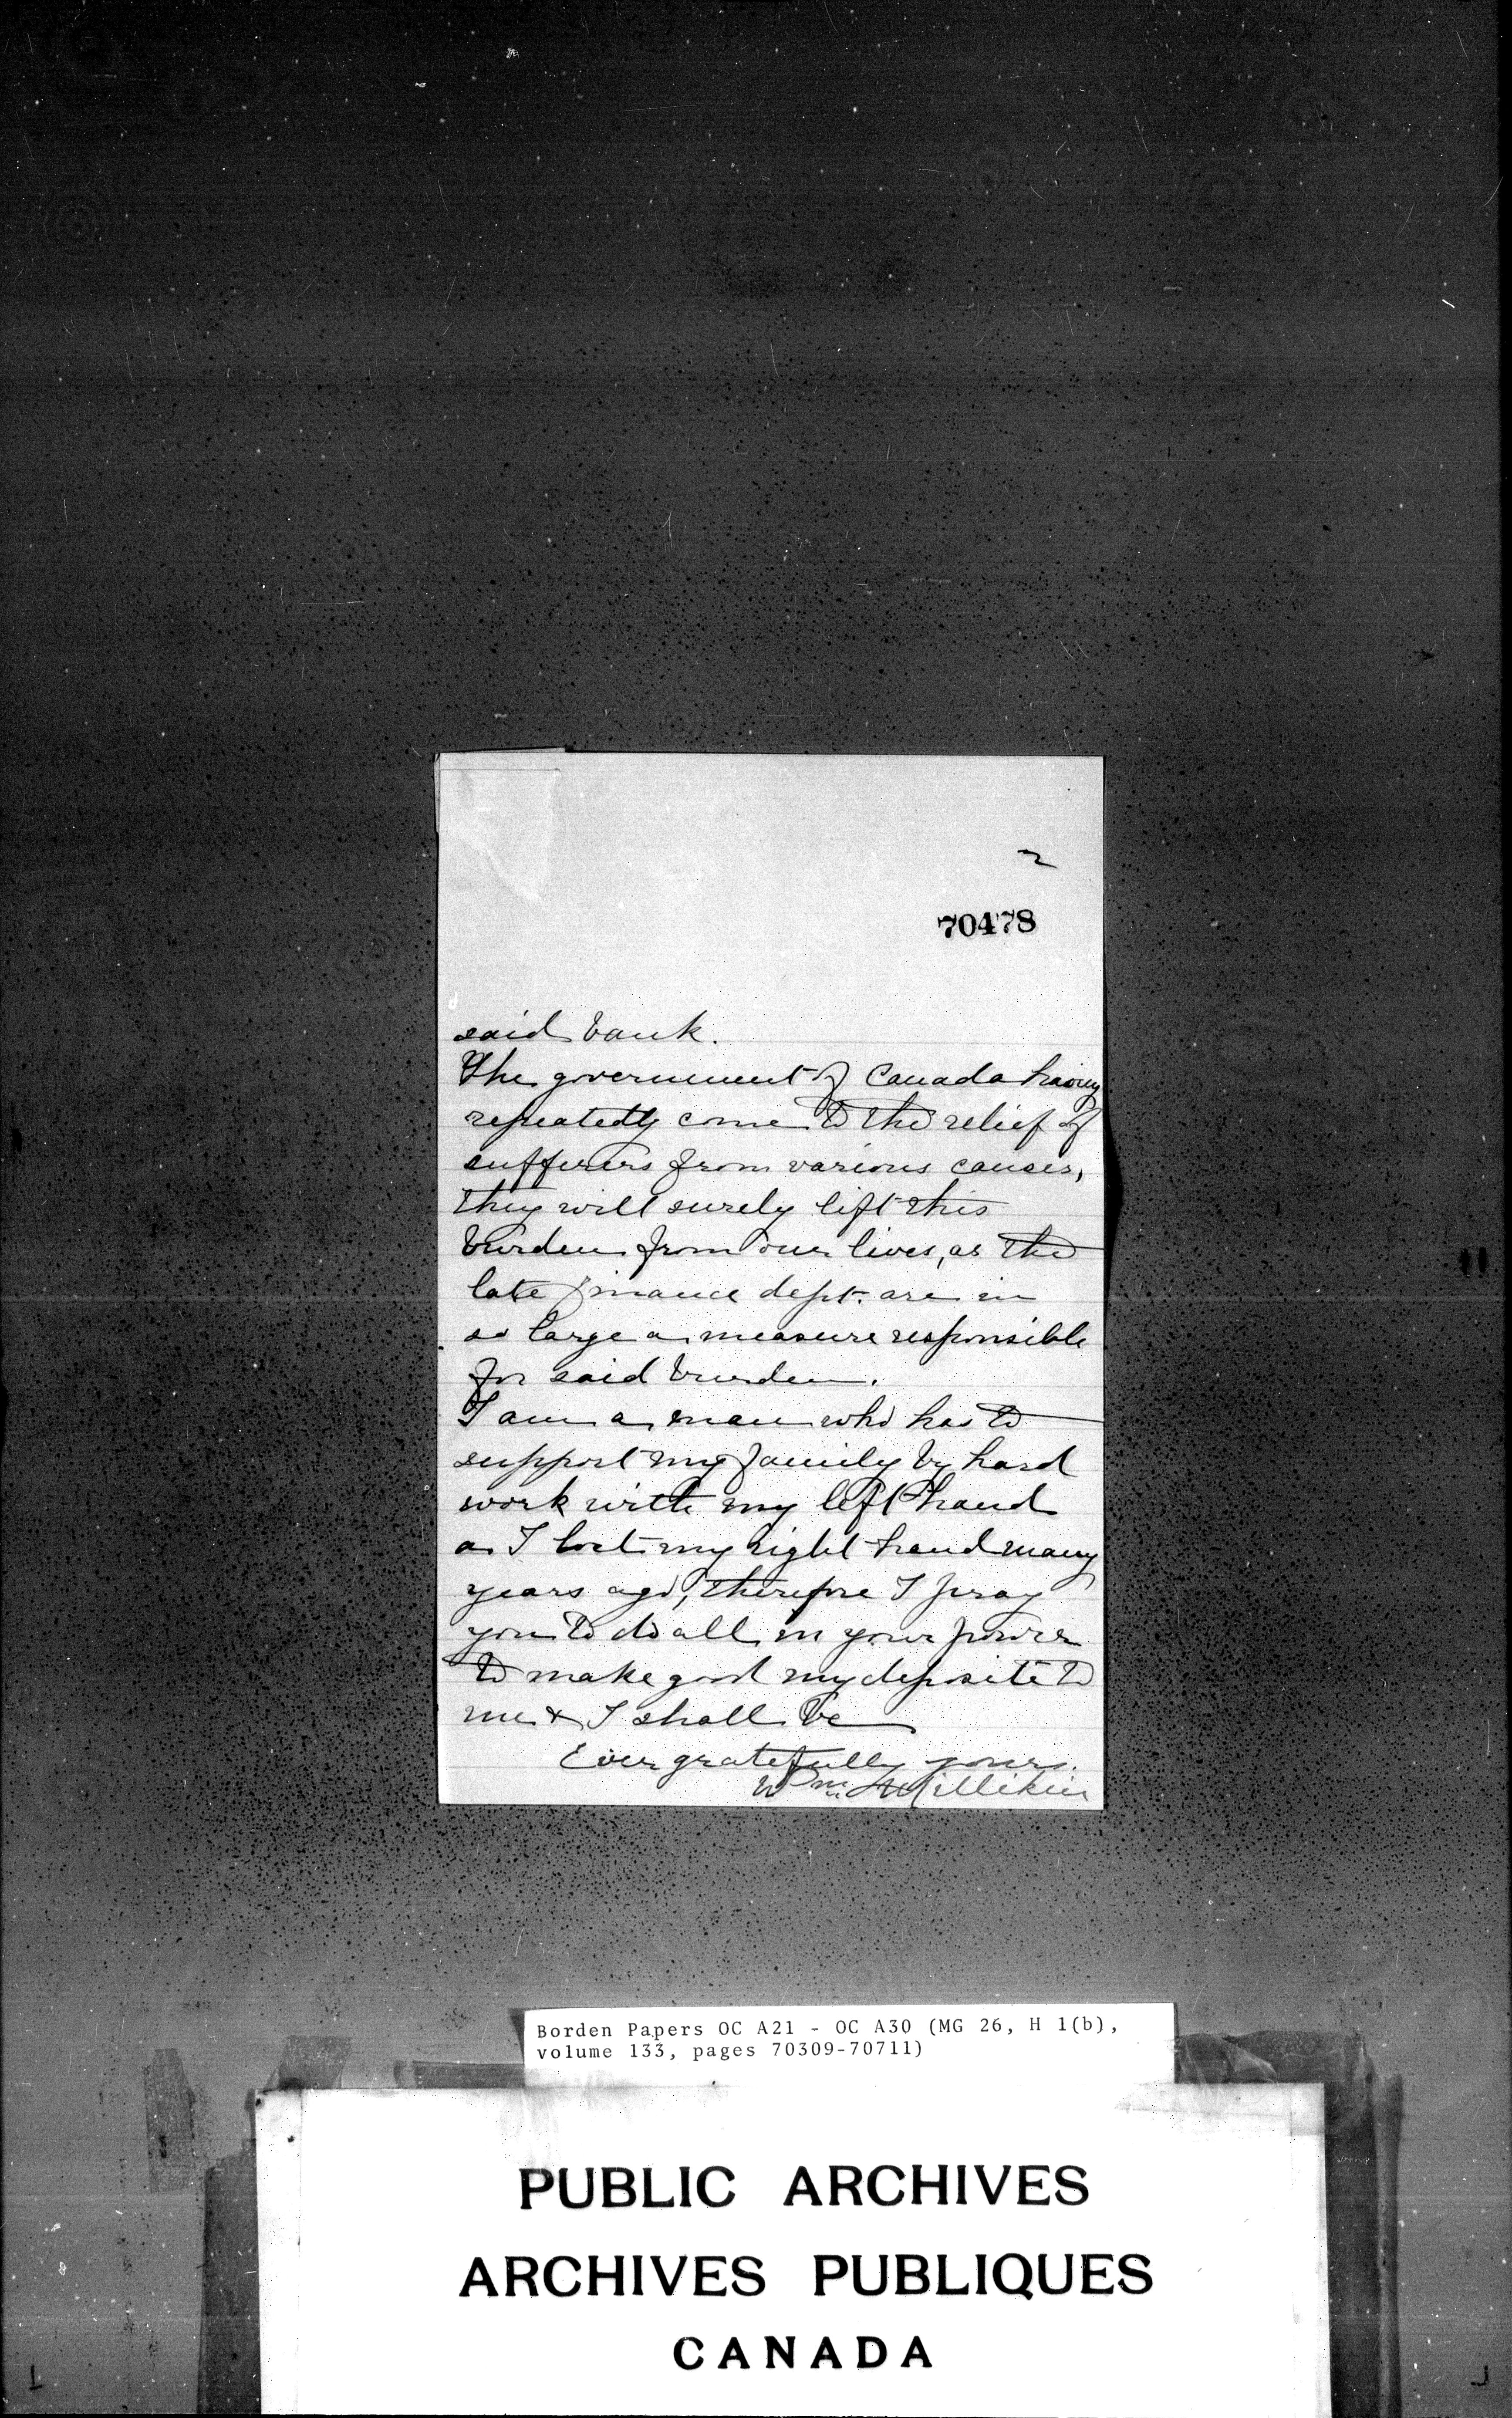 2
70478
said bank.
The government of Canada having
repeatedly come to the relief of
sufferers from various causes,
they will surely lift this
burden from our lives, as the
late finance dept. are in
so large a measure responsible
for said burden.
I am a man who has to
support my family by hard
work with my left hand
as I lost my right hand many
years ago, therefore I pray
you to do all in your power
to make good my deposite to
me & I shall be
Ever gratefully yours.
Wm Millikin
Borden Papers OC A21 - OC A30 (MG 26, H 1(b),
volume 133, pages 70309-70711)
PUBLIC ARCHIVES
ARCHIVES PUBLIQUES
CANADA